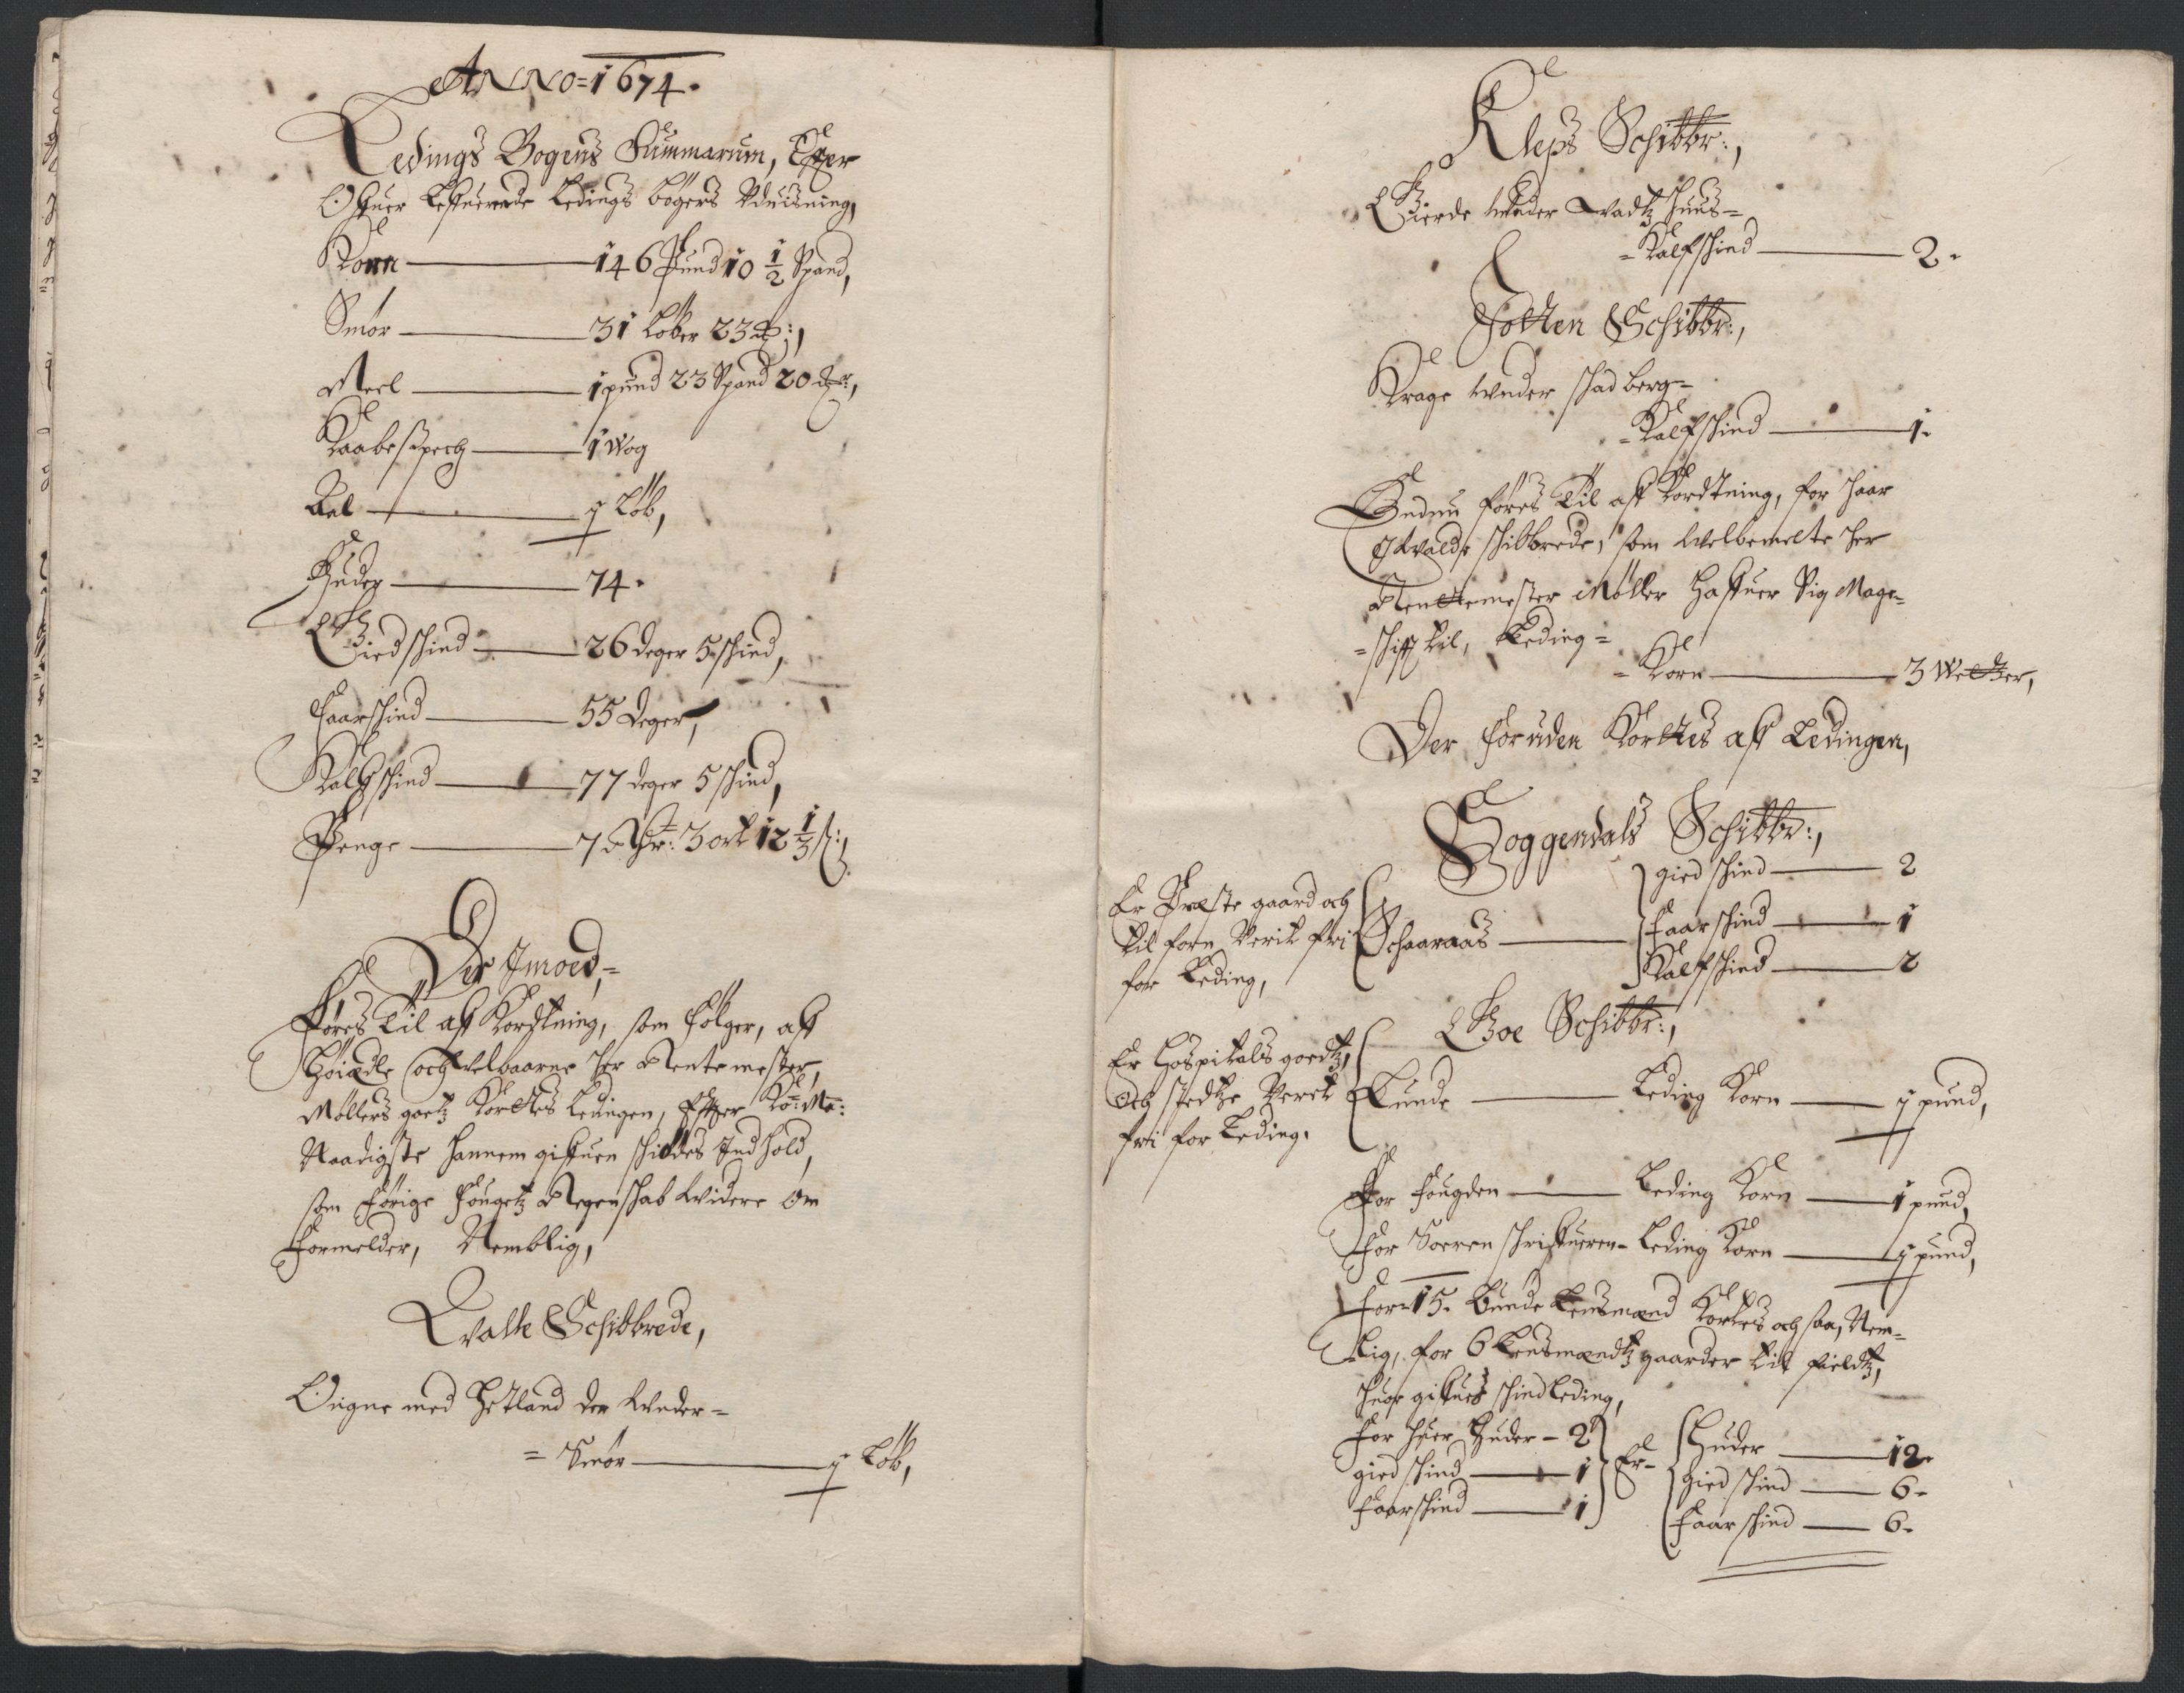 ANNO = 1674.
Ledings Bogens Summarum, Effter
Ofuer lefuerede Ledings bögers Vduisning,
Korn — 146 Pund 10 1/2 Spand,
Smör — 31 Löber 23 ℔:,
Meel — 1 pund 23 Spand 20 mrk:,
Raabespech — 1 Wog
Aal — ½ Löb,
Huder — 74.
Giedschind — 26 deger 5 schind,
Faarschind — 55 deger,
Kalfschind — 77 deger 5 schind,
Penge — 7 Rdr: 3 ort 12 1/3 ß:,
Der Jmoed,=
Föres Til aff Kordtning, som fölger, aff
Höiædle och velbaarne Her Rentemester,
Möllers goetz Kortes Ledingen, Effter Ko: Ma:
Naadigste hannem gifuen schiödes Indhold,
som förige fougetz Regenschab widere om
formelder, Nemblig,
Hvalle Schibbrede,
Oigne med Hetland der Wnder =
= Smör — ½ Löb,
Kleps Schibbr:,
Gierde wnder Wadtz Huus =
= Kalfschind — 2.
Jotten Schibbr:,
Krage wnder schadberg =
= Kalfschind — 1.
Endnu föres Til aff Kordtning, for Haar
Schibbrede, som welbemelte Her
Rentemester Möller Hafuer Sig Mage=
=schifft til, Leding =
= Korn — 3 Wetter,
Der foruden Kortes aff Ledingen,
Soggendals Schibbr:,
Er Præste gaard och
til forn Verit fri
for Leding,
Schaaraas —
gied schind — 2
Faarschind — 1
Kalfschind — 2
Boe Schibbr:,
Er Hospitals goedtz,
och stedtze Verit
fri for Leding.
Lunde — Leding Korn — ½ pund,
For fougden — Leding Korn — 1 pund,
For Soeren schrifueren — Leding Korn — ½ pund,
For 15. Bunde Lensmænd Kortes och saa, Nem=
lig, for 6 Lensmændtz gaarder til fieldtz,
huor gifues schind leding,
for huer Huder — 2
gied schind — 1
Faarschind — 1
Er —
Huder — 12.
Gied schind — 6.
Faar schind — 6.